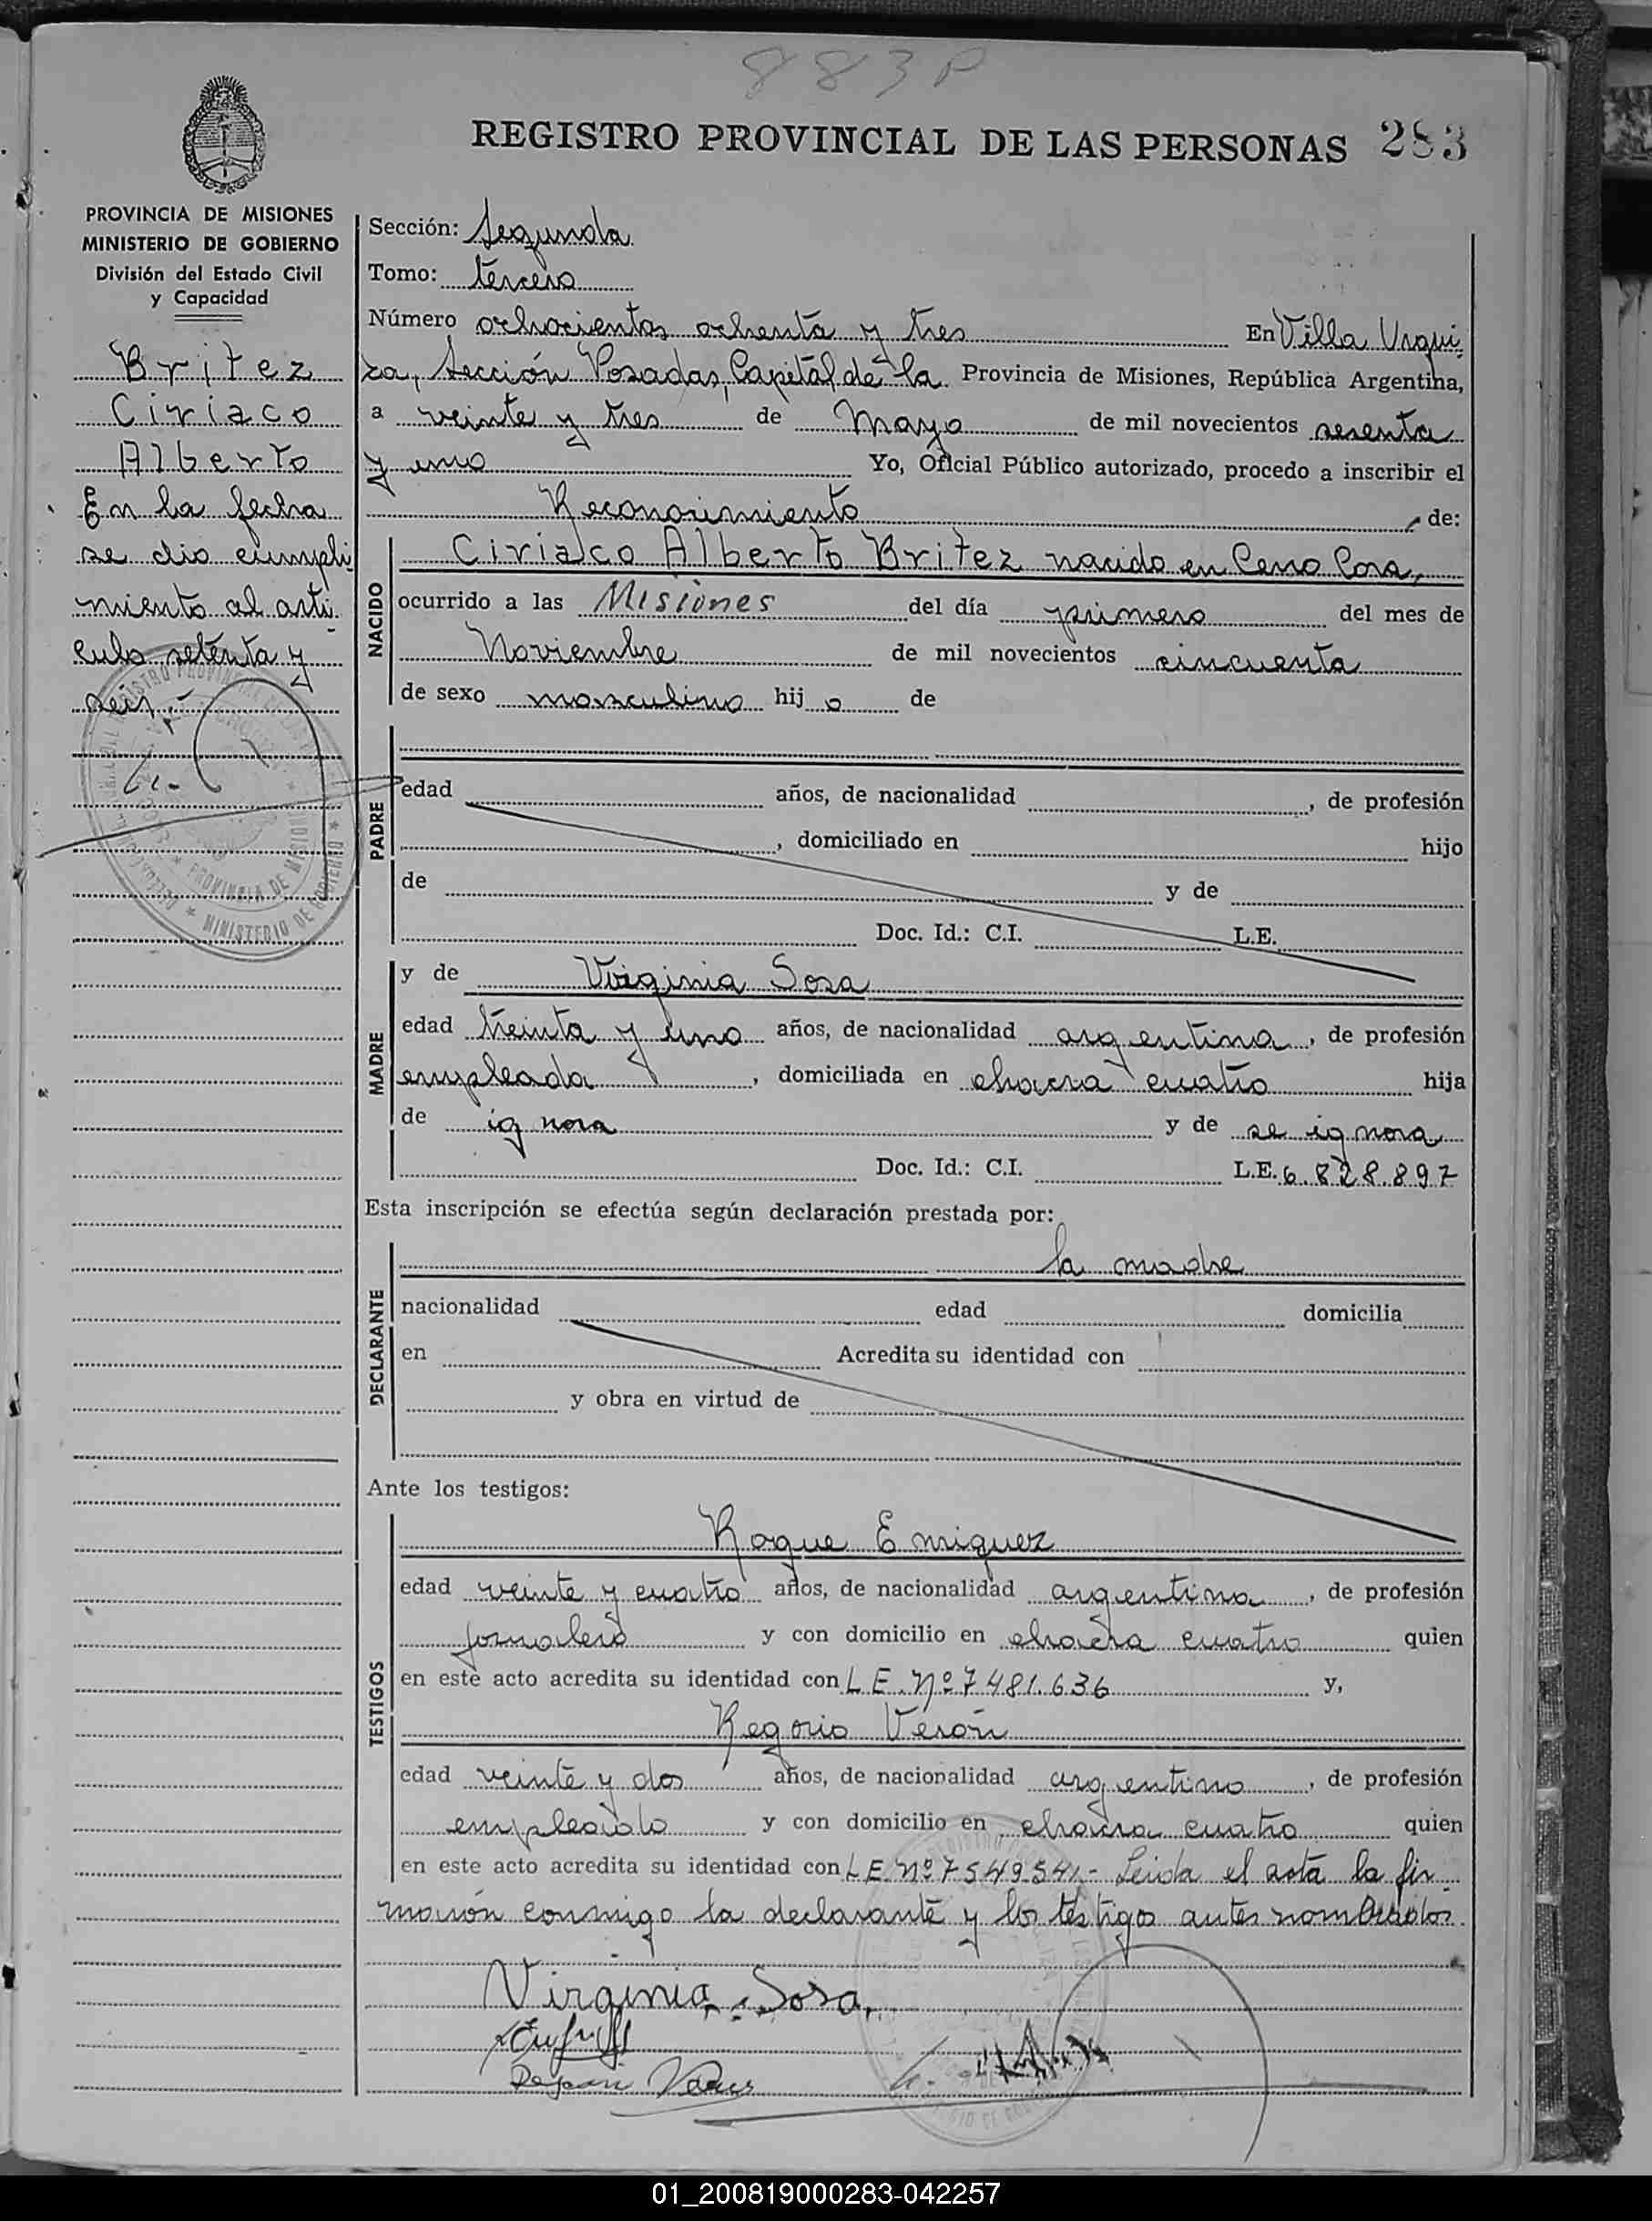 883 P
REGISTRO PROVINCIAL DE LAS PERSONAS 283
PROVINCIA DE MISIONES
MINISTERIO DE GOBIERNO
División del Estado Civil
y Capacidad
Britez
Ciriaco
Alberto
En la fecha
se dio cumpli
miento al arti
culo setenta y
seis.-
Sección: Segunda
Tomo: tercero
Número ochocientos ochenta y tres En Villa Urqui
za, Sección Posadas, Capital de la Provincia de Misiones, República Argentina,
a veinte y tres de Mayo de mil novecientos sesenta
y uno Yo, Oficial Público autorizado, procedo a inscribir el
Reconocimiento, de:
NACIDO
Ciriaco Alberto Britez nacido en Cerro Cora,
ocurrido a las Misiones del día primero del mes de
Noviembre de mil novecientos cincuenta
de sexo masculino hijo de
PADRE
edad años, de nacionalidad , de profesión
, domiciliado en hijo
de y de
Doc. Id.: C.I. L.E.
MADRE
y de Virginia Sosa
edad treinta y uno años, de nacionalidad argentina, de profesión
empleada, domiciliada en chacra cuatro hija
de ignora y de se ignora
Doc. Id.: C.I. L.E. 6.828.897
Esta inscripción se efectúa según declaración prestada por:
DECLARANTE
la madre
nacionalidad edad domicilia
en Acredita su identidad con
y obra en virtud de
Ante los testigos:
TESTIGOS
Roque Enriquez
edad veinte y cuatro años, de nacionalidad argentina, de profesión
jornalero y con domicilio en chacra cuatro quien
en este acto acredita su identidad con L E. Nº 7481.636 y,
Regorio Verón
edad veinte y dos años, de nacionalidad argentino, de profesión
empleado y con domicilio en chacra cuatro quien
en este acto acredita su identidad con L E. Nº 7549.541.- Leida el acta la fir
marón conmigo la declarante y los testigos antes nombrados.
Virginia Sosa,
01_200819000283-042257